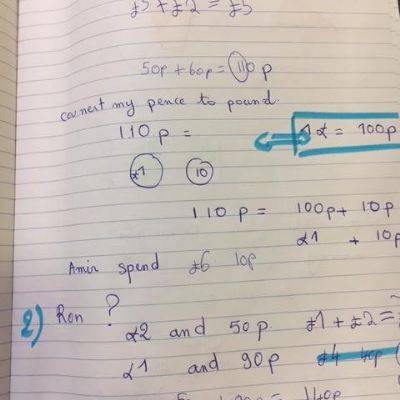 £3 + £2 = £5
50p + 60p = 110 p
convert my pence to pound.
110 p =
1£ = 100p
£1 10
110 p = 100p + 10p
£1 + 10p
Amir spend £6 10p
2) Ron ?
£2 and 50p £1 + £2 =
£1 and 90p £4 40p
140p